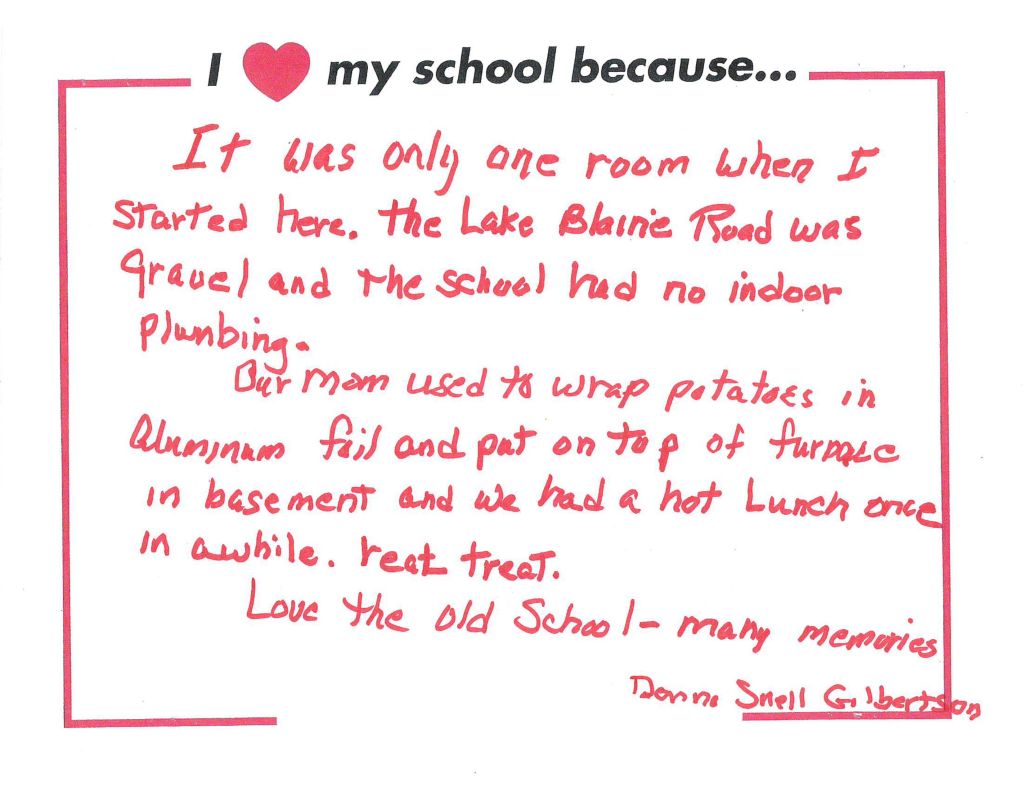 I ❤ my school because...
It was only one room when I
started here. the Lake Blaine Road was
gravel and the school had no indoor
plumbing.
Our mom used to wrap potatoes in
aluminum foil and put on top of furnace
in basement and we had a hot Lunch once
in awhile. real treat.
Love the old School - many memories
Snell Gilbertson